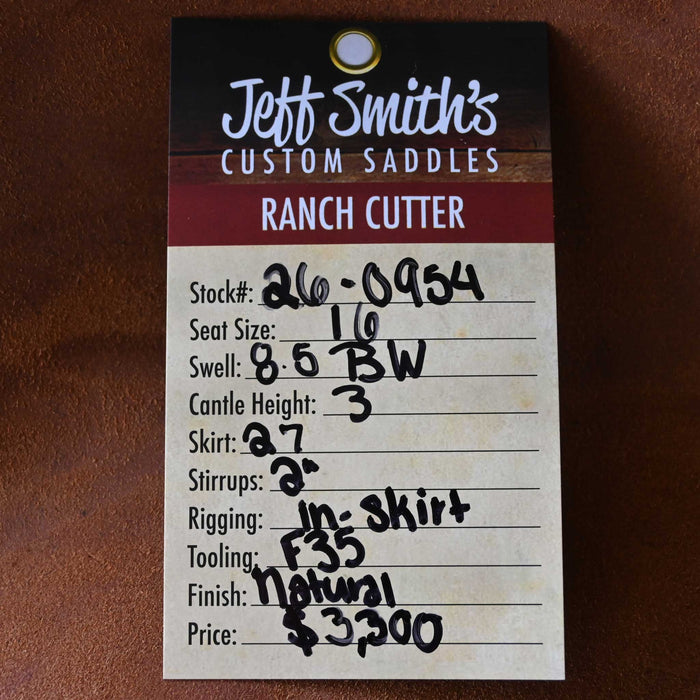 Jeff Smith's
CUSTOM SADDLES
RANCH CUTTER
Stock#: 26-0954
Seat Size: 16
Swell: 8.5 BW
Cantle Height: 3
Skirt: 27
Stirrups: 2"
Rigging: In-Skirt
Tooling: F35
Finish: Natural
Price: $3,300